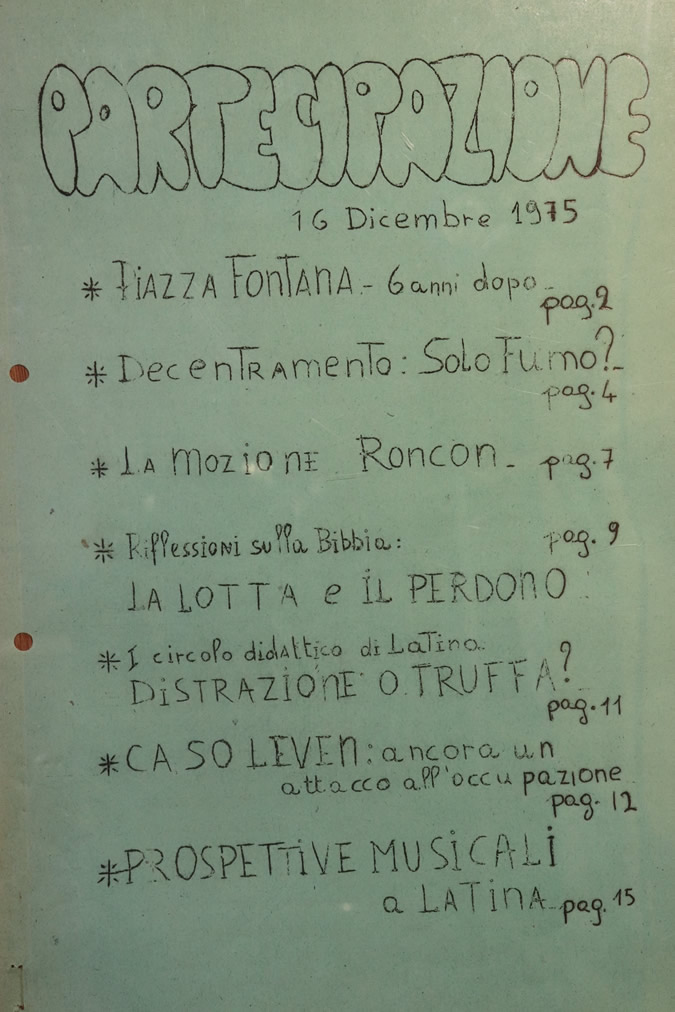 PARTECIPAZIONE
16 Dicembre 1975
* PiAZZA FonTAnA.- 6 anni dopo-
pag.2
* DecenTRAmenTo: Solo Fumo?-
pag.4
* LA mozionE Roncon- pag.7
* Riflessioni sulla Bibbia: pag. 9
LA LOTTA e iL PERDONO
* I circolo didattico di LaTina.
DiSTRAZiOnE O TRUFFA?
pag.11
* CASO LEVEn: ancora un
attacco all'occupazione
pag. 12
* PROSPETTiVE MUSiCALi
a LATinA- pag.15